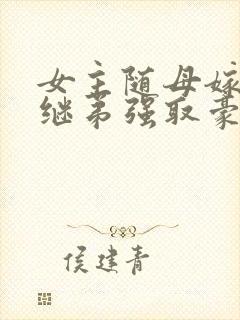 女主随母嫁
继弟强取豪
侯建青